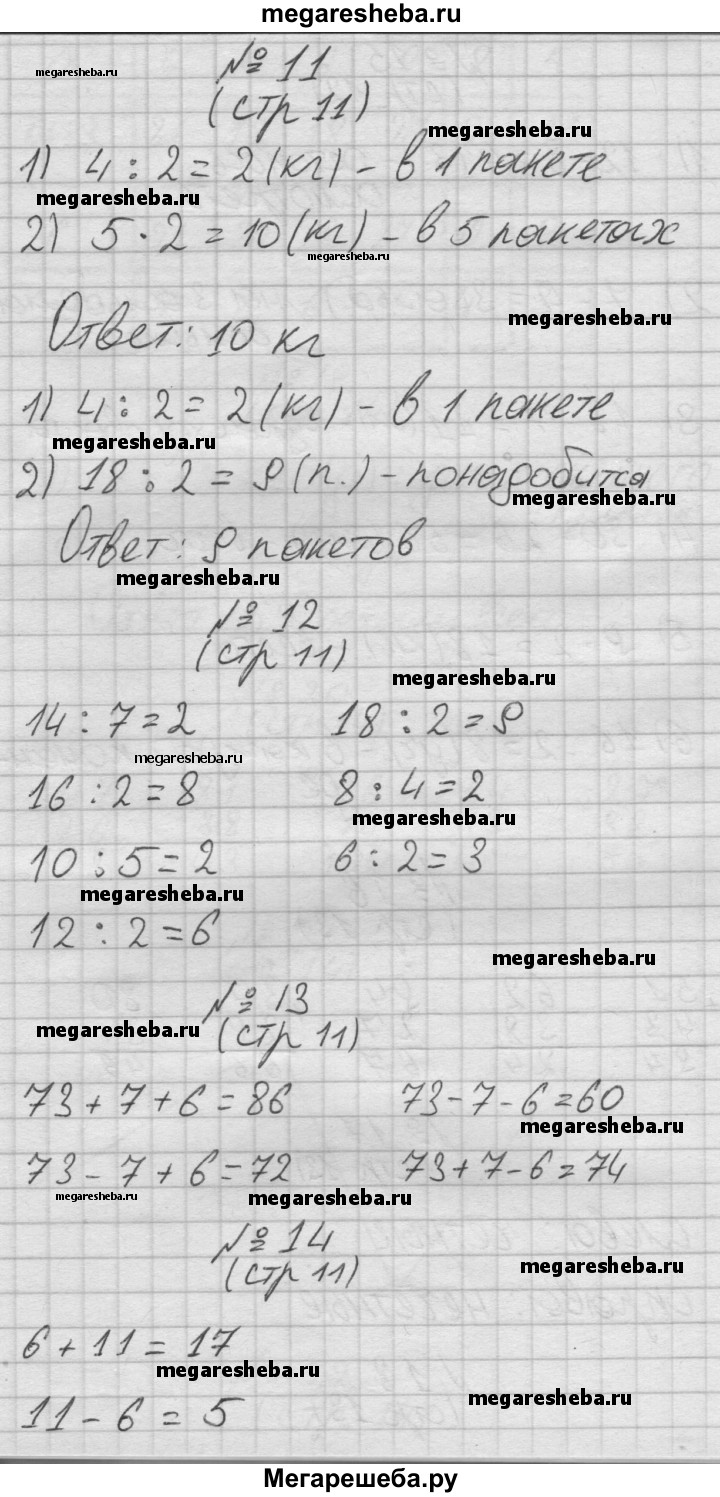 megaresheba.ru
№ 11
megaresheba.ru
(стр 11)
megaresheba.ru
1) 4 : 2 = 2 (кг) - в 1 пакете
megaresheba.ru
2) 5 · 2 = 10 (кг) - в 5 пакетах
megaresheba.ru
megaresheba.ru
Ответ: 10 кг
1) 4 : 2 = 2 (кг) - в 1 пакете
megaresheba.ru
2) 18 : 2 = 9 (п.) - понадобится
megaresheba.ru
Ответ: 9 пакетов
megaresheba.ru
№ 12
(стр 11)
megaresheba.ru
14 : 7 = 2 18 : 2 = 9
megaresheba.ru
16 : 2 = 8 8 : 4 = 2
megaresheba.ru
10 : 5 = 2 6 : 2 = 3
megaresheba.ru
12 : 2 = 6
megaresheba.ru
№ 13
megaresheba.ru
(стр 11)
73 + 7 + 6 = 86 73 - 7 - 6 = 60
megaresheba.ru
73 - 7 + 6 = 72 73 + 7 - 6 = 74
megaresheba.ru megaresheba.ru
№ 14
megaresheba.ru
(стр 11)
6 + 11 = 17
megaresheba.ru
megaresheba.ru
11 - 6 = 5
Мегарешеба.ру